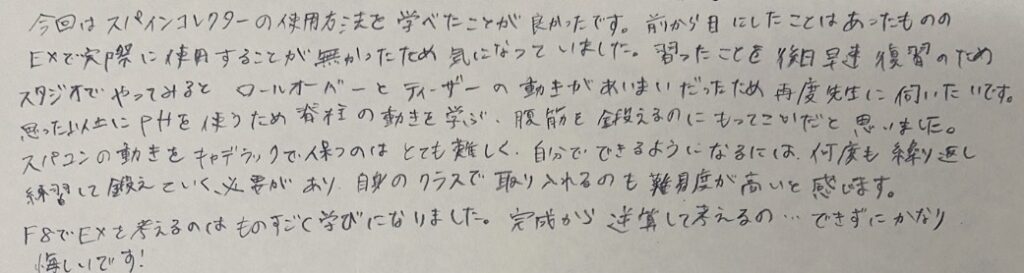 今回はスパインコレクターの使用方法を学べたことが良かったです。前から目にしたことはあったものの
EXで実際に使用することが無かったため気になっていました。習ったことを後日早速復習のため
スタジオでやってみると ロールオーバーとティーザーの動きがあいまいだったため再度先生に伺いたいです。
思った以上にPHを使うため脊柱の動きを学ぶ、腹筋を鍛えるのにもってこいだと思いました。
スパコンの動きをキャデラックで保つのはとても難しく、自分でできるようになるには、何度も繰り返し
練習して鍛えていく必要があり、自身のクラスで取り入れるのも難易度が高いと感じます。
F8でEXを考えるのはものすごく学びになりました。完成から逆算して考えるの…できずにかなり
悔しいです!